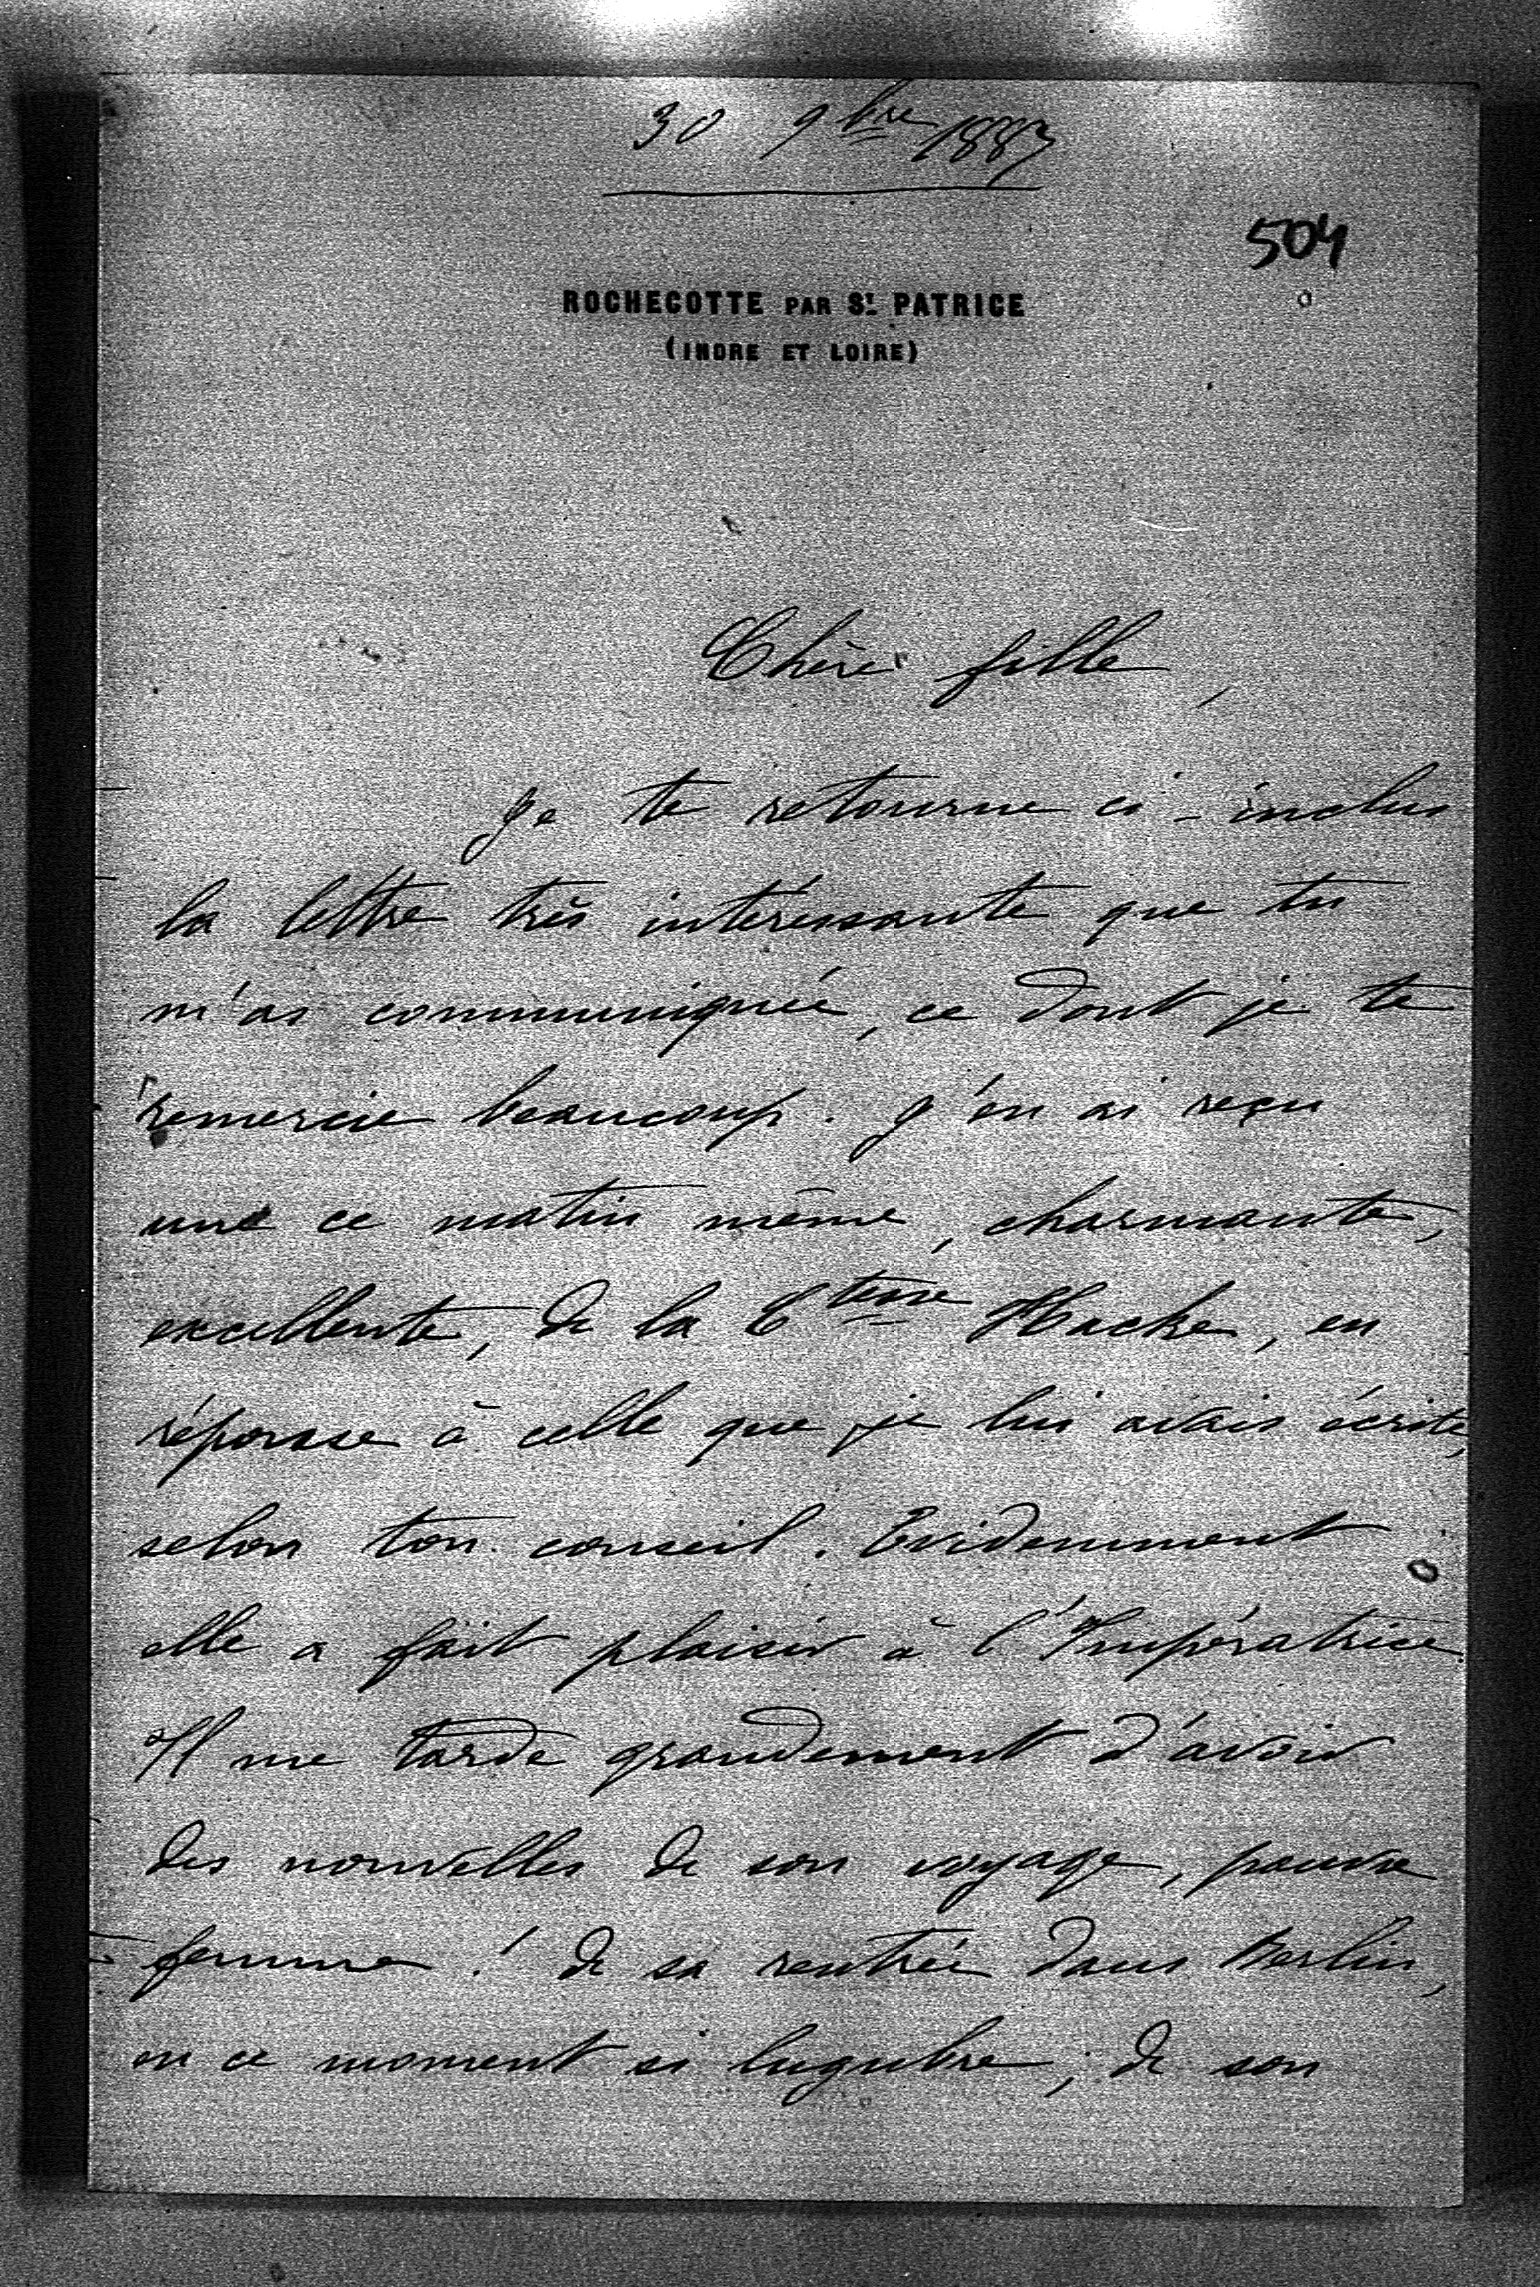 30 9bre 1887
504
ROCHECOTTE PAR ST PATRICE
(INDRE ET LOIRE)
Chère fille,
Je te retourne ci-inclus
la lettre très intéressante que tu
m'as communiquée, ce dont je te
remercie beaucoup. J'en ai reçu
une ce matin même, charmante,
excellente, de la Ctesse Hacke, en
réponse à celle que je lui avais écrite,
selon ton conseil. Evidemment
elle a fait plaisir à l'Impératrice.
Il me tarde grandement d'avoir
des nouvelles de son voyage, pauvre
femme ! de sa rentrée dans Berlin,
en ce moment si lugubre ; de son